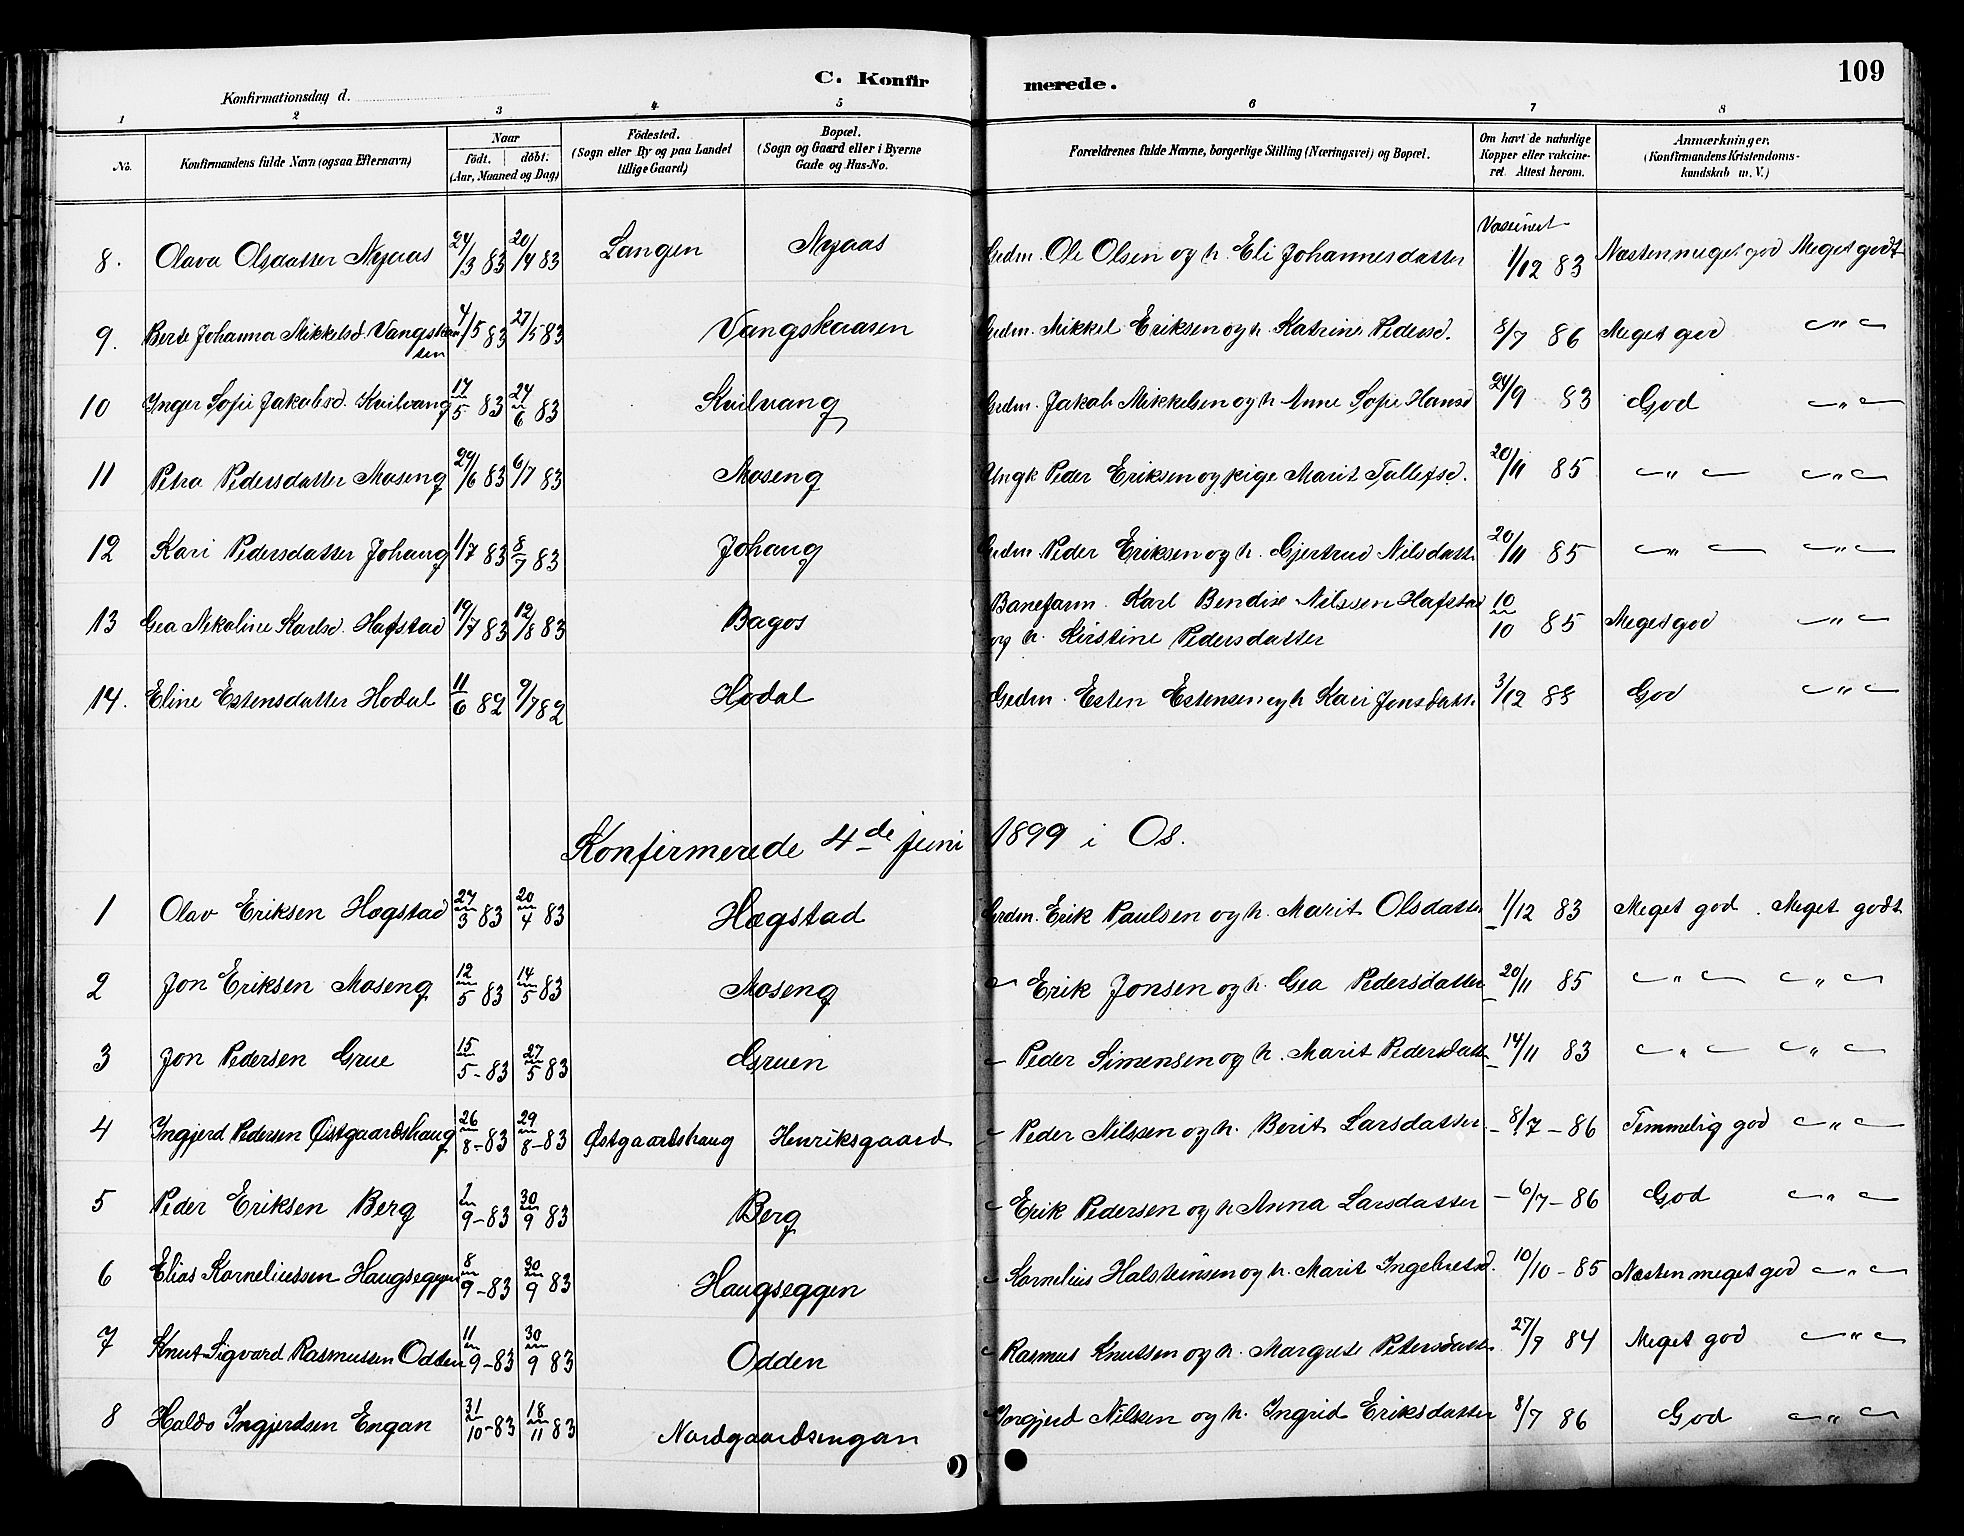 C. Konfirmerede.
109
Konfirmationsdag d.
1 2 3 4 5 6 7 8
No.
Konfirmandens fulde Navn (ogsaa Efternavn)
Naar
født. døbt.
(Aar, Maaned og Dag)
Fødested.
(Sogn eller By og paa Landet
tillige Gaard)
Bopæl.
(Sogn og Gaard eller i Byerne
Gade og Hus-No.
Forældrenes fulde Navne, borgerlige Stilling (Næringsvei) og Bopæl.
Om havt de naturlige
Kopper eller vakcine-
ret. Attest herom.
Anmærkninger.
(Konfirmandens Kristendoms-
kundskab m. V.)
8. Olava Olsdatter Nyaas 24/3 83 20/4 83 Langen Nyaas Grdm. Ole Olsen og h. Eli Johannesdatter Vaccineret 1/12 83 Næsten meget god Meget godt
9. Berte Johanna Mikkelsd. Vangskaasen 4/5 83 27/5 83 Vangskaasen Grdm. Mikkel Eriksen og h Katrine Pedersd. 8/7 86 Meget god — " —
10 Inger Sofie Jakobsd. Kvilvang 17/5 83 24/6 83 Kvilvang Grdm. Jakob Mikkelsen og h Anne Sofie Hansd 24/9 83 God — " —
11 Petra Pedersdatter Moseng 29/6 83 6/7 83 Moseng Ungk Peder Eriksen og pige Marit Tollefsd. 20/11 85 — " — — " —
12 Kari Pedersdatter Johaug 1/7 83 8/7 83 Johaug Grdm Peder Eriksen og h. Gjertrud Nilsdatt 20/11 85 — " — — " —
13 Gea Nikoline Karlsd. Hafstad 19/7 83 12/8 83 Bagos Baneform. Karl Bendix Nilssen Hafstad
og h. Kirstine Pedersdatter 10/10 85 Meget god — " —
14. Eline Estensdatter Hodal 11/6 82 9/7 82 Hodal Grdm. Esten Estensen og h Kari Jonsdatt 3/12 88 God — " —
Konfirmerede 4de Juni 1899 i Os.
1 Olav Eriksen Hægstad 27/3 83 20/4 83 Hægstad Grdm. Erik Paulsen og h. Marit Olsdatter 1/12 83 Meget god. Meget godt
2 Jon Eriksen Moseng 12/5 83 14/5 83 Moseng — Erik Jonsen og h. Gea Pedersdatter — 20/11 85 — " — — " —
3 Jon Pedersen Grue 15/5-83 27/5 83 Gruen — Peder Simensen og h. Marit Pedersdatt — 14/11 83 — " — — " —
4 Ingjerd Pedersen Østgaardshaug 26/8-83 29/8-83 Østgaardshaug Henriksgaard — Peder Nilssen og h. Berit Larsdatter — 8/7-86 Temmelig god — " —
5 Peder Eriksen Berg 2/9-83 30/9 83 Berg — Erik Pedersen og h Anna Larsdatter — 6/7-86 God — " —
6 Elias Korneliussen Haugseggen 8/9-83 30/9 83 Haugseggen — Kornelius Halsteinsen og h. Marit Ingebretsd. 10/10-85 Næsten meget god — " —
7 Knut Sigvard Rasmussen Odden 11/9-83 30/9 83 Odden — Rasmus Knutsen og h. Margrete Petersdatt 27/9 84 Meget god — " —
8 Haldo Ingjerdsen Engan 31/10-83 18/11 83 Nordgaardsengan Ingjerd Nilsen og h. Ingrid Eriksdatter 8/7 86 God — " —